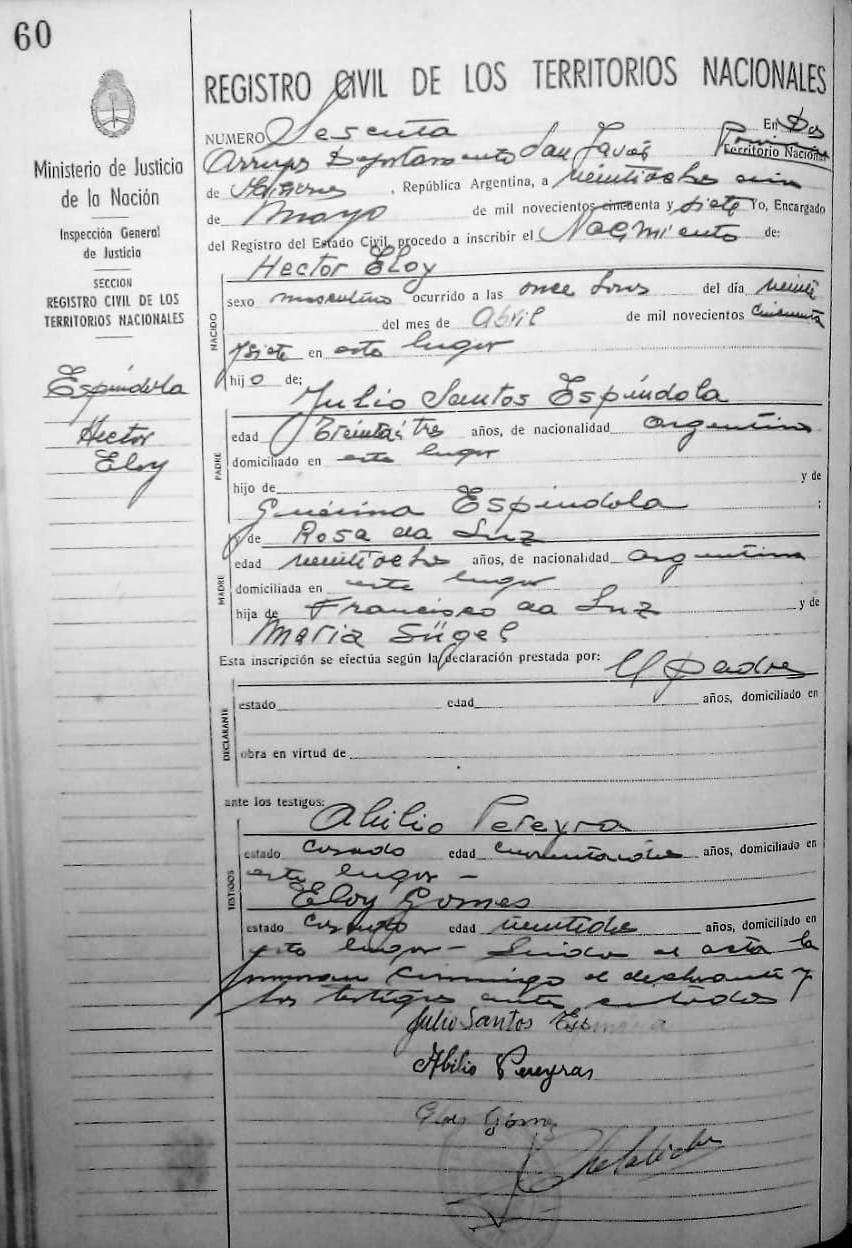 60
Ministerio de Justicia
de la Nación
Inspección General
de Justicia
SECCION
REGISTRO CIVIL DE LOS
TERRITORIOS NACIONALES
Espíndola
Hector
Eloy
REGISTRO CIVIL DE LOS TERRITORIOS NACIONALES
NUMERO Sesenta En Dos
Arroyos Departamento San Javier Provincia Territorio Nacional
de Misiones, República Argentina, a veintiocho
de Mayo de mil novecientos cincuenta y siete Yo, Encargado
del Registro del Estado Civil, procedo a inscribir el Nacimiento de:
Hector Eloy
NACIDO
sexo masculino ocurrido a las once horas del día veinti
del mes de Abril de mil novecientos cincuenta
y siete en este lugar
hijo de;
Julio Santos Espíndola
PADRE
edad treinta y tres años, de nacionalidad argentino
domiciliado en este lugar
hijo de y de
Espíndola ;
y de Rosa da Luz
MADRE
edad veintiocho años, de nacionalidad argentina
domiciliada en este lugar
hija de Francisco da Luz y de
Maria Sügel
Esta inscripción se efectúa según la declaración prestada por: El padre
DECLARANTE
estado edad años, domiciliado en
obra en virtud de
ante los testigos: Abilio Pereyra
TESTIGOS
estado casado edad años, domiciliado en
este lugar -
Eloy Gomes
estado casado edad años, domiciliado en
este lugar - Leida el acta la
firmaron conmigo el declarante y
los testigos ante citados
Julio Santos Espíndola
Abilio Pereyras
Gómes